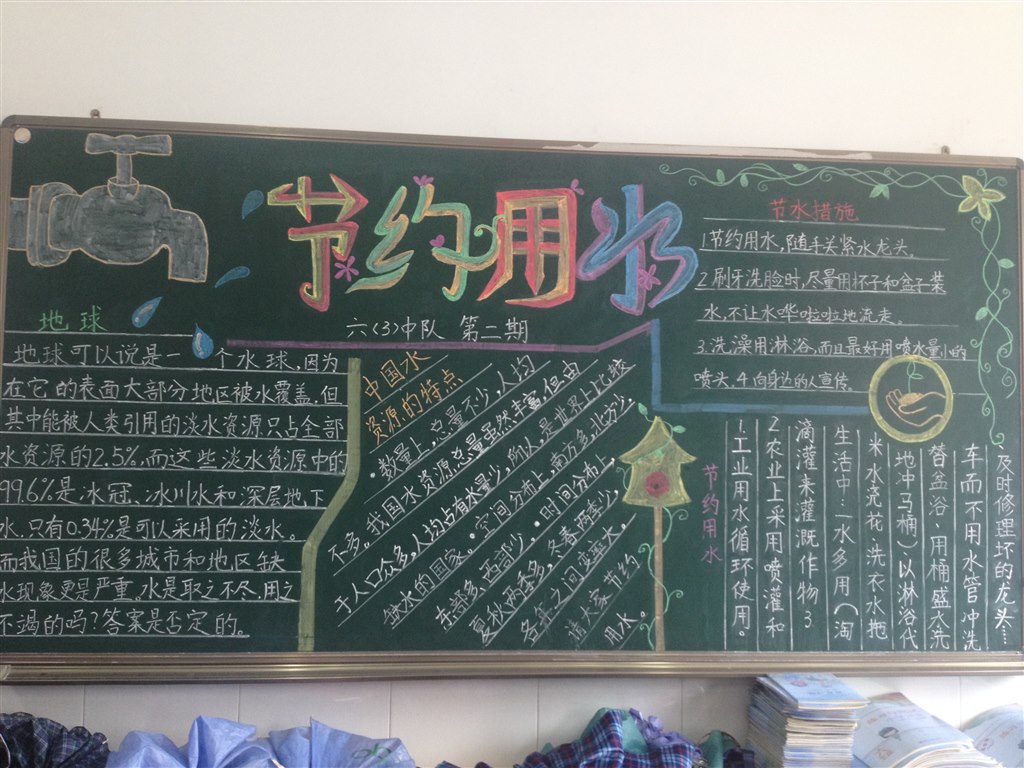 节约用水
六(3)中队 第二期
地球
地球可以说是一个水球,因为
在它的表面大部分地区被水覆盖.但
其中能被人类引用的淡水资源只占全部
水资源的2.5%,而这些淡水资源中的
99.6%是冰冠、冰川水和深层地下
水.只有0.34%是可以采用的淡水。
而我国的很多城市和地区缺
水现象更是严重.水是取之不尽,用之
不竭的吗?答案是否定的。
中国水
资源的特点
·数量上,总量不少,人均
不多。我国水资源总量虽然丰富,但由
于人口众多,人均占有水量少,所以,是世界上比较
缺水的国家。·空间分布上,南方多,北方少,
东部多,西部少。·时间分布上,
夏秋两季多,冬春两季少,
各年之间变率大。
请大家节约
用水。
节水措施
1.节约用水,随手关紧水龙头。
2.刷牙洗脸时,尽量用杯子和盆子装
水,不让水哗啦啦地流走。
3.洗澡用淋浴,而且最好用喷水量小的
喷头.4.向身边的人宣传
节约用水
1.工业用水循环使用。
2.农业上采用喷灌和
滴灌来灌溉作物3
生活中:一水多用(淘
米水浇花.洗衣水拖
地冲马桶)以淋浴代
替盆浴、用桶盛水洗
车而不用水管冲洗
及时修理坏的龙头……